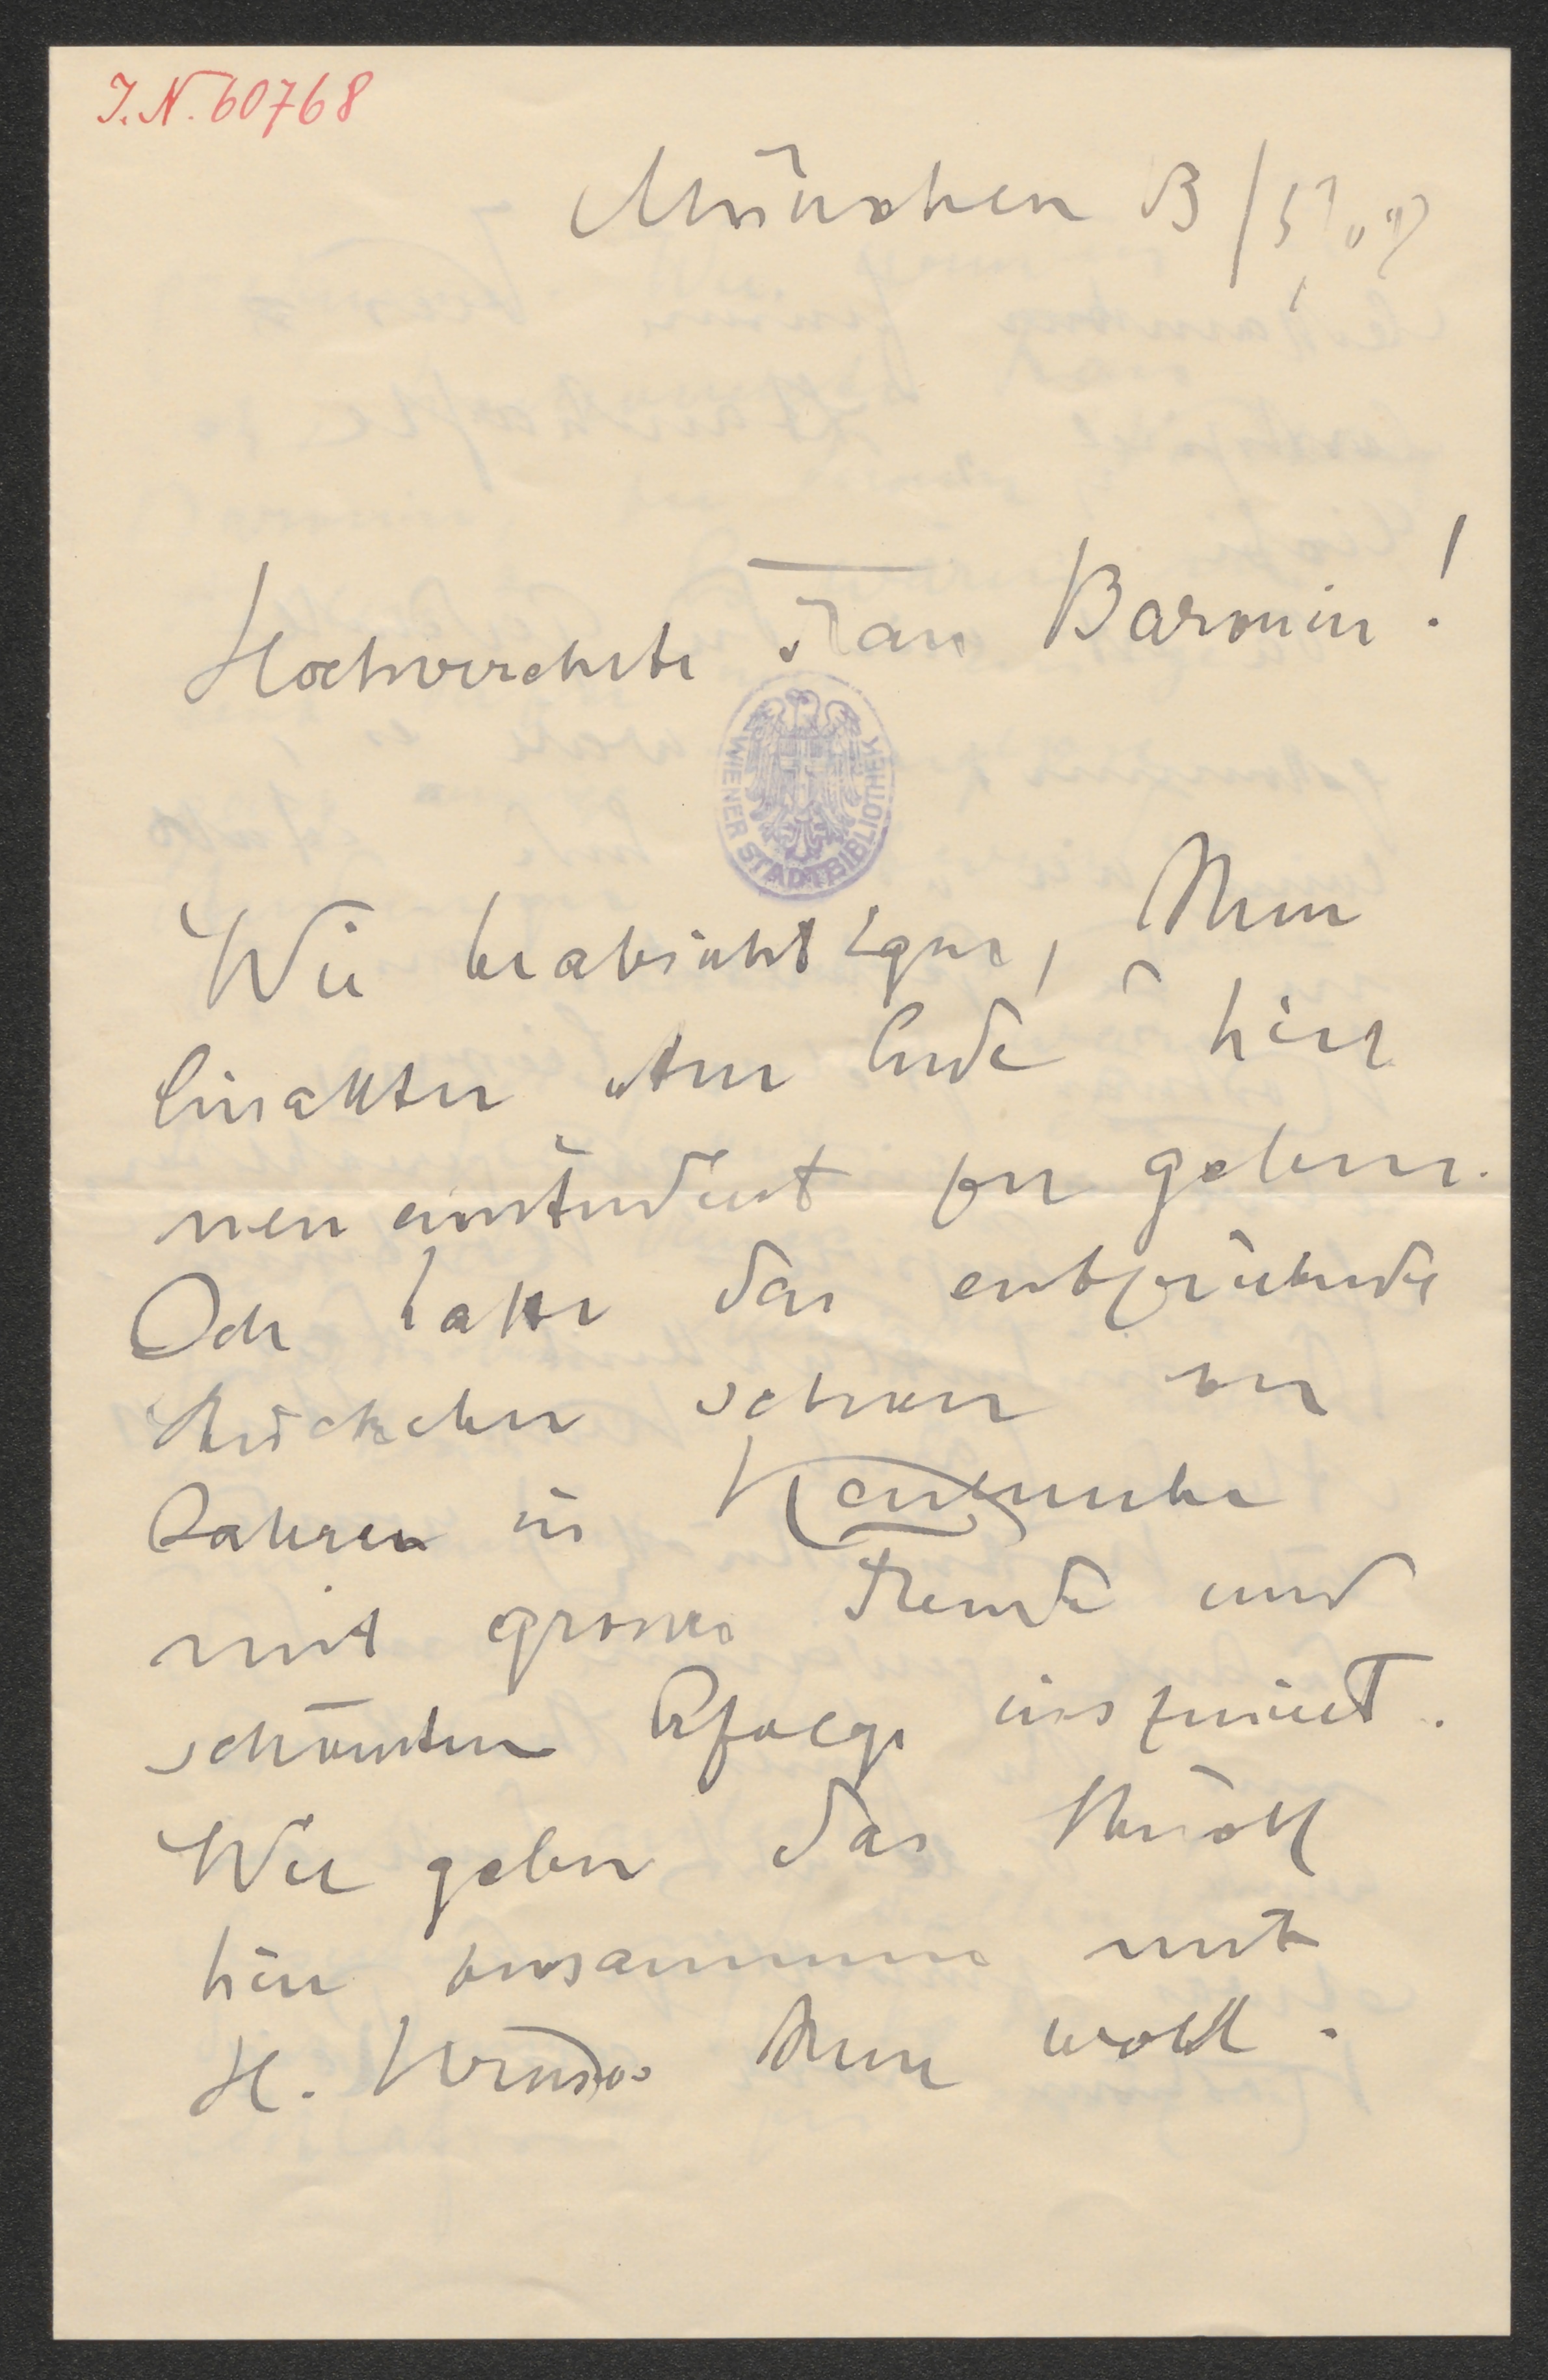 I.N. 60768
München 13/5
Hochverehrte Frau Baronin!
WIENER STADTBIBLIOTHEK
Wir beabsichtigen, Ihren
Einakter „Am Ende“ hier
neu einstudiert zu geben.
Ich hatte das entzückende
Stückchen schon vor
Jahren in Karlsruhe
mit grosser Freude und
schönstem Erfolge inszeniert.
Wir geben das Stück
hier zusammen mit
H.